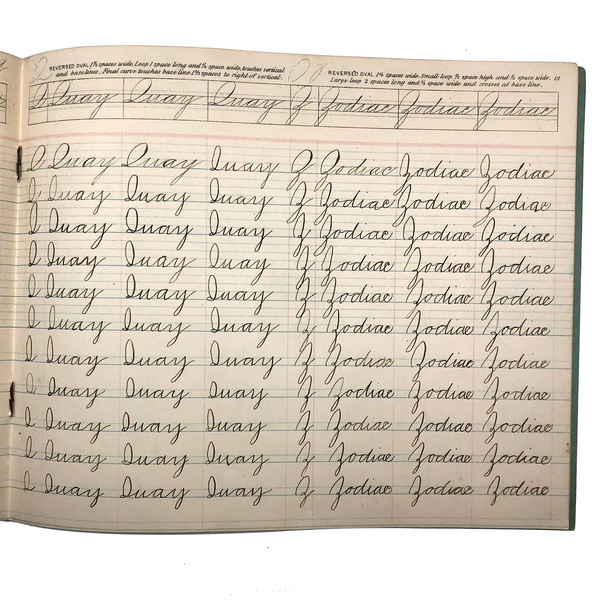 Q REVERSED OVAL spaces wide, Loop 1 space long and space wide, touches vertical
and base lines. Final curve touches base line spaces to right of vertical.
Z REVERSED OVAL spaces wide. Small loop space high and space wide. 13
Large loop 2 spaces long and space wide and crosses at base line.
Q Quay Quay Quay Z Zodiac Zodiac Zodiac
Q Quay Quay Quay Z Zodiac Zodiac Zodiac
Q Quay Quay Quay Z Zodiac Zodiac Zodiac
Q Quay Quay Quay Z Zodiac Zodiac Zodiac
Q Quay Quay Quay Z Zodiac Zodiac Zodiac
Q Quay Quay Quay Z Zodiac Zodiac Zodiac
Q Quay Quay Quay Z Zodiac Zodiac Zodiac
Q Quay Quay Quay Z Zodiac Zodiac Zodiac
Q Quay Quay Quay Z Zodiac Zodiac Zodiac
Q Quay Quay Quay Z Zodiac Zodiac Zodiac
Q Quay Quay Quay Z Zodiac Zodiac Zodiac
Q Quay Quay Quay Z Zodiac Zodiac Zodiac